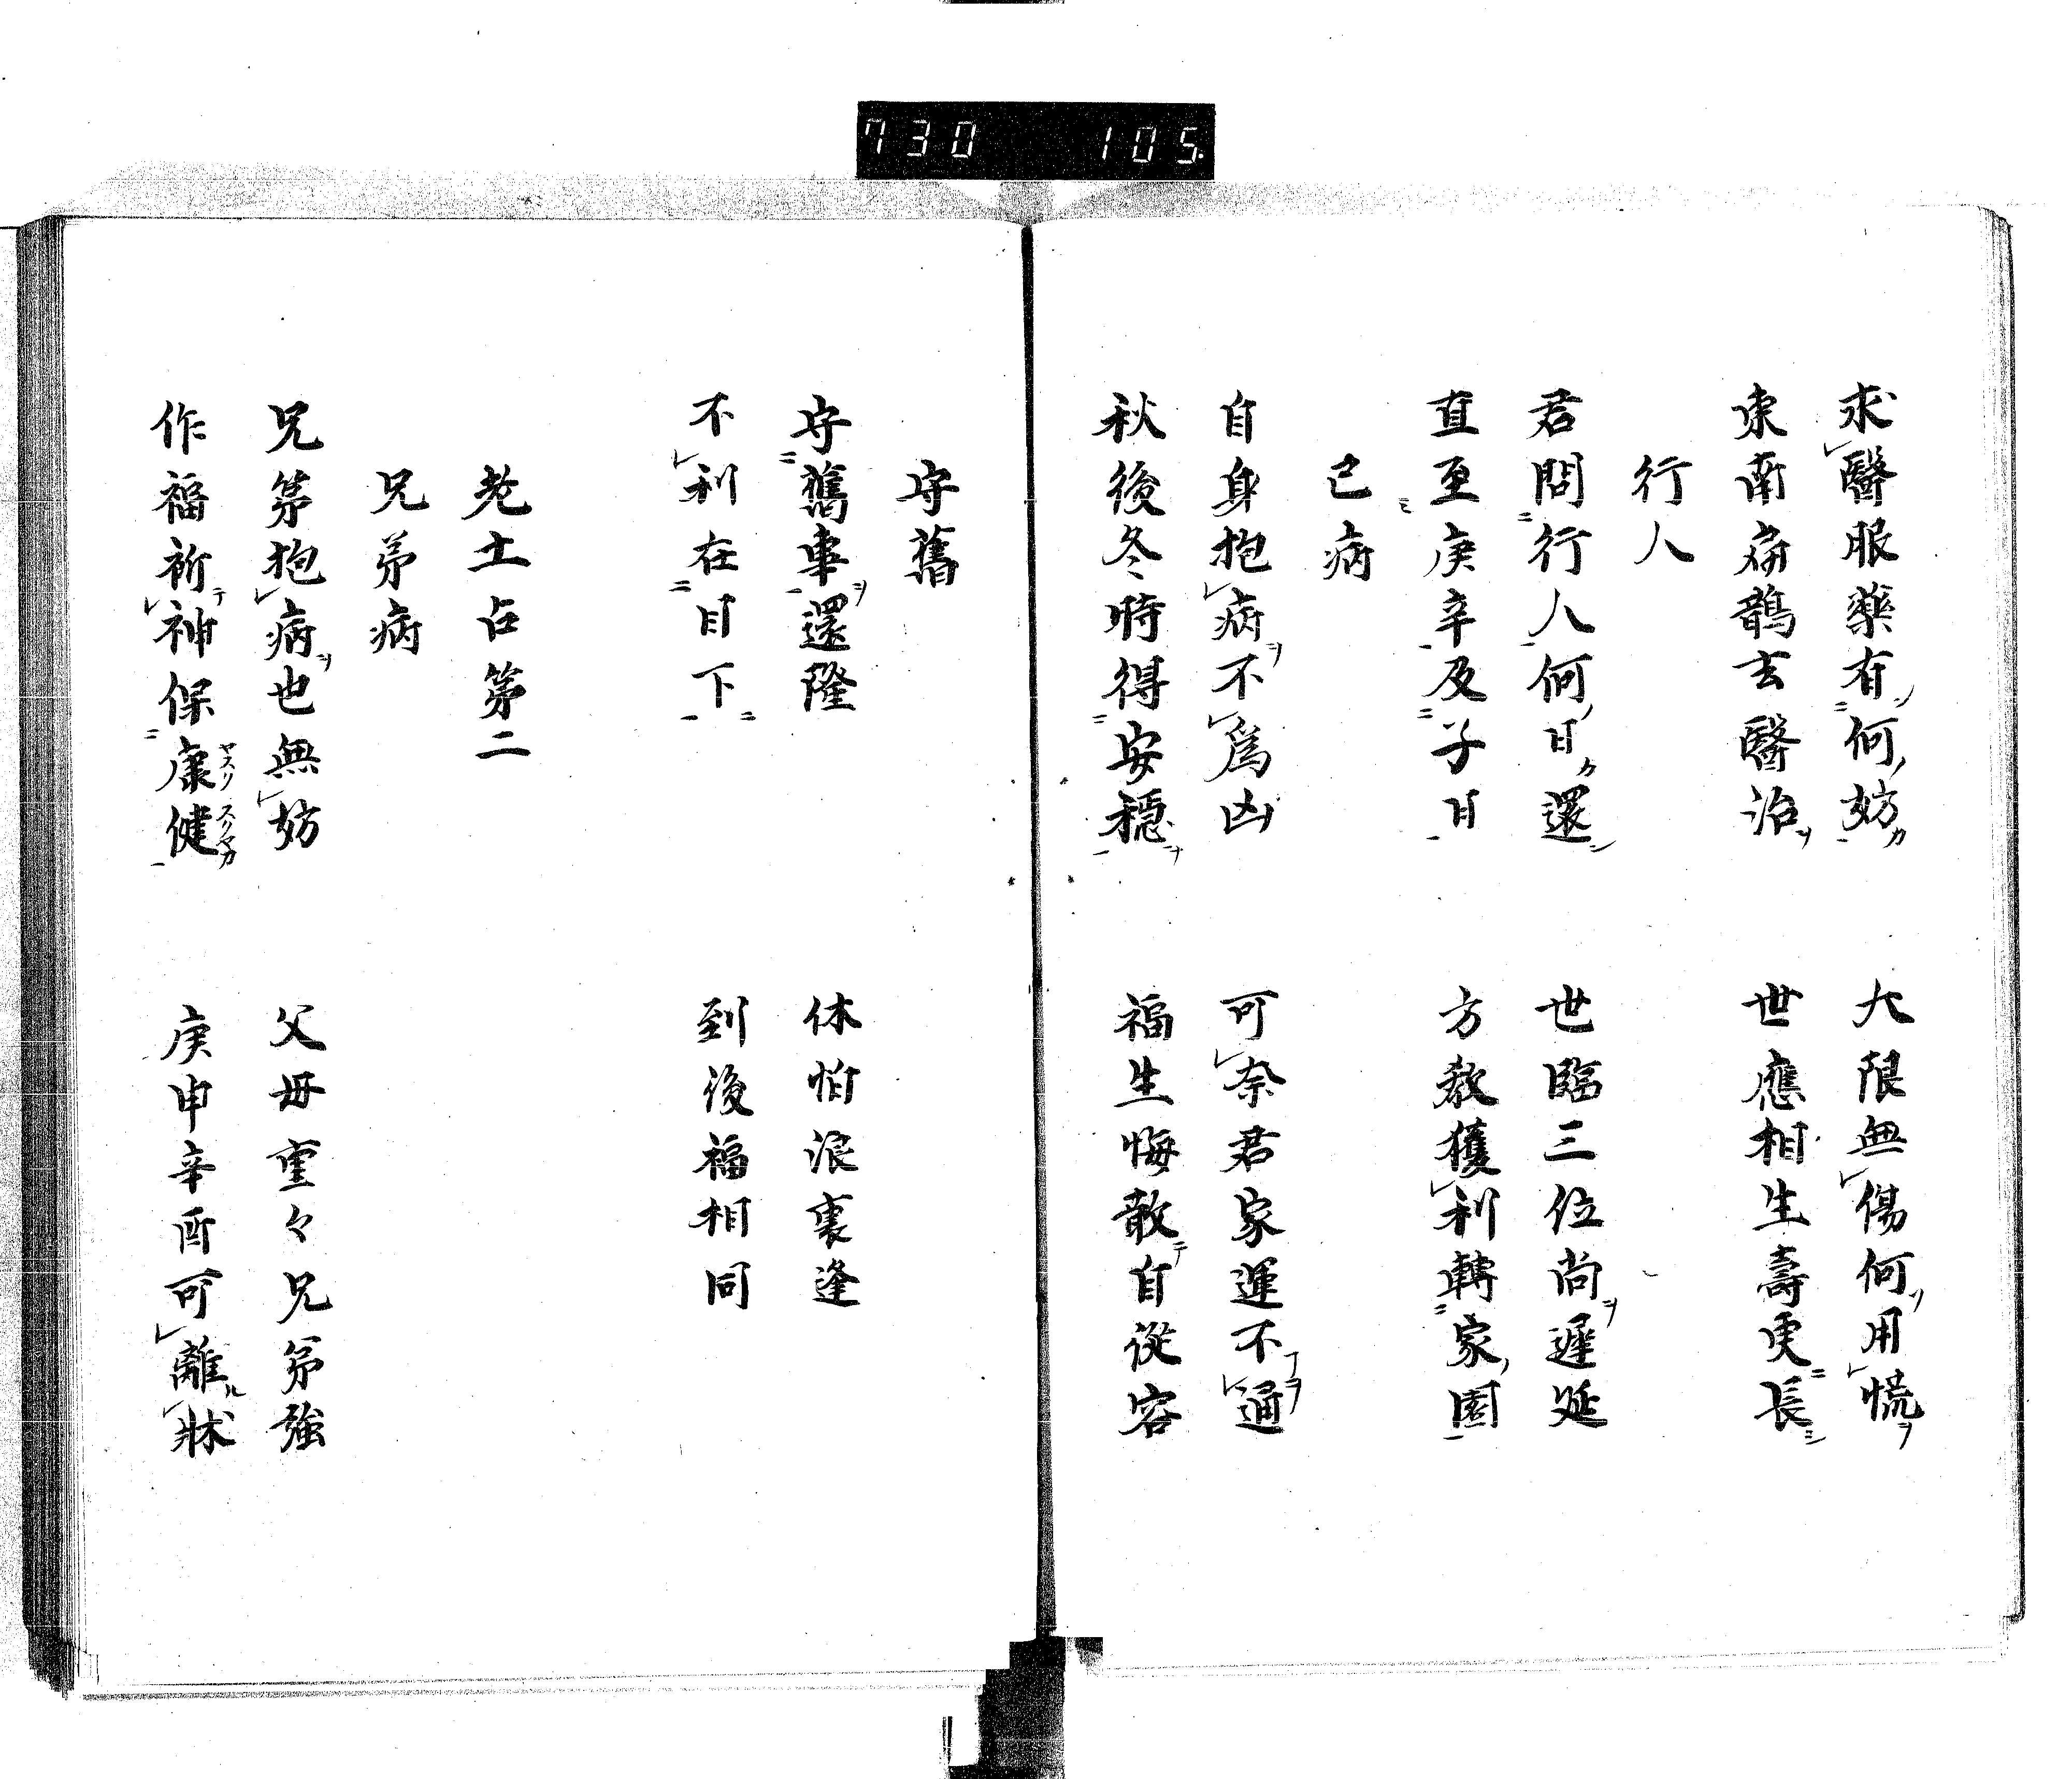 730 105
求醫服藥有何妨 大限無傷何用慌
東南扁鵲玄醫治 世應相生壽更長
行人
君問行人何日還 世臨三位尚遲延
直至庚辛及子日 方教獲利轉家園
己病
自身抱病不爲凶 可奈君家運不通
秋後冬時得安穩 福生悔散自從容
守舊
守舊事還隆 休怕浪裏逢
不利在目下 到後福相同
兄弟病
兄弟抱病也無妨 父母重々兄弟強
作福祈神保康健 庚申辛酉可離牀